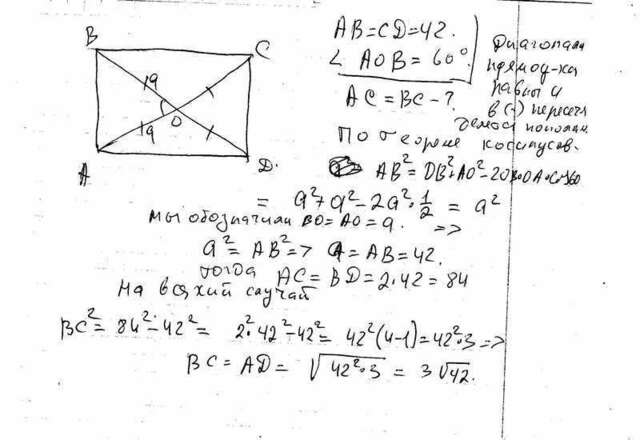 B
C
A
D.
O
1a
1a
AB=CD=42.
∠ AOB = 60°.
AC = BC - ?
Диагонали
прямоу-ка
равны и
в (·) пересеч
пополам
По теореме косинусов.
AB² = OB²+AO²-2OB·OA·Cos60
= a²+a²-2a²·1/2 = a²
мы обозначили BO=AO=a. =>
a² = AB² => a=AB=42.
тогда AC=BD=2·42=84
на всякий случай
BC² = 84²-42² = 2²·42²-42² = 42²(4-1)=42²·3 =>
BC = AD = √42²·3 = 3√42.